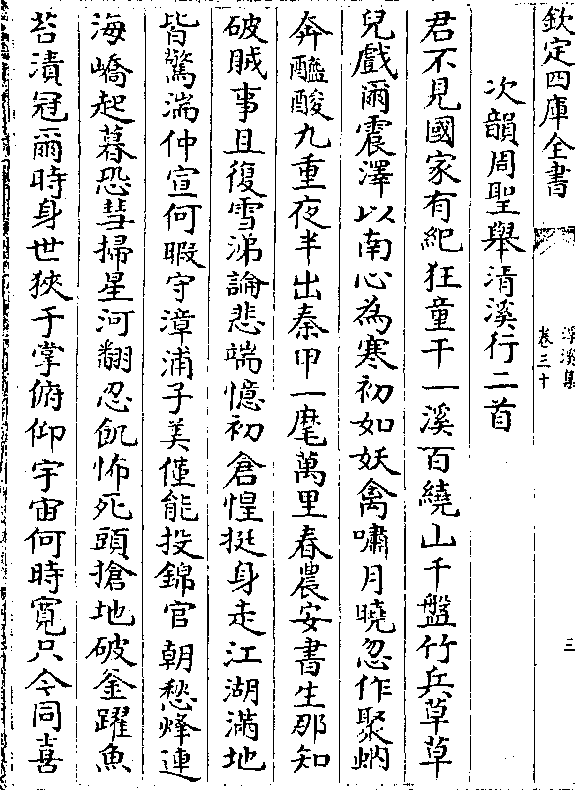 欽定四庫全書
浮溪集
卷三十
三
次韻周聖舉清溪行二首
君不見國家有紀狂童干一溪百繞山千盤竹兵草草
兒戲爾震澤以南心為寒初如妖禽嘯月曉忽作聚蚋
奔醯酸九重夜半出秦甲一麾萬里春農安書生那知
破賊事且復雪涕論悲端憶初倉惶挺身走江湖滿地
皆驚湍仲宣何暇守漳浦子美僅能投錦官朝愁烽連
海嶠起暮恐彗掃星河翻忍飢怖死頭搶地破釜躍魚
苔漬冠爾時身世狹于掌俯仰宇宙何時寛只今同喜